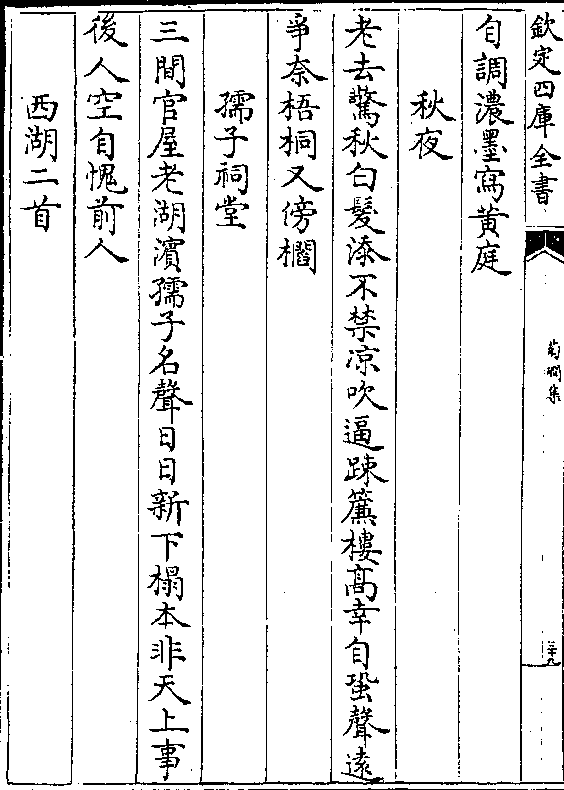 欽定四庫全書
菊磵集
三十九
自調濃墨寫黃庭
秋夜
老去驚秋白髮添不禁凉吹逼踈簾樓髙幸自蛩聲逺
爭奈梧桐又傍櫩
孺子祠堂
三間官屋老湖濵孺子名聲日日新下榻本非天上事
後人空自愧前人
西湖二首